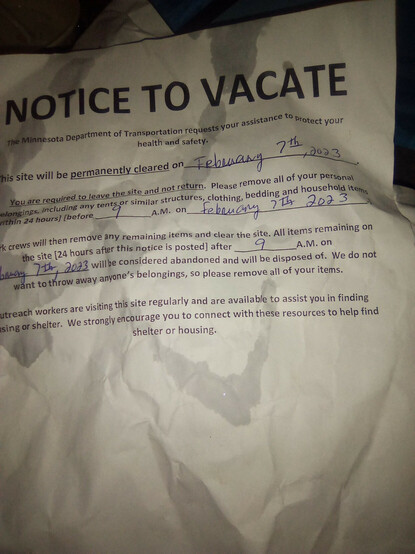 NOTICE TO VACATE
The Minnesota Department of Transportation requests your assistance to protect your
health and safety.
This site will be permanently cleared on February 7th, 2023.
You are required to leave the site and not return. Please remove all of your personal
belongings, including any tents or similar structures, clothing, bedding and household items
within 24 hours] (before 9 A.M. on February 7th 2023
rk crews will then remove any remaining items and clear the site. All items remaining on
the site [24 hours after this notice is posted] after 9 A.M. on
uary 7th, 2023 will be considered abandoned and will be disposed of. We do not
want to throw away anyone's belongings, so please remove all of your items.
utreach workers are visiting this site regularly and are available to assist you in finding
sing or shelter. We strongly encourage you to connect with these resources to help find
shelter or housing.